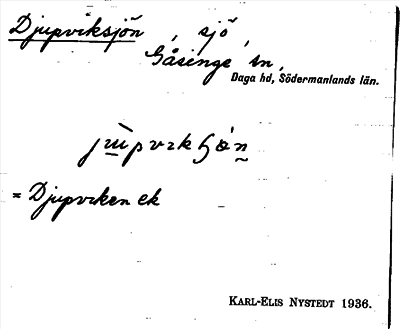 Djupviksjön, sjö
Gåsinge sn,
Daga hd, Södermanlands län.
= Djupviken ek
KARL-ELIS NYSTEDT 1936.